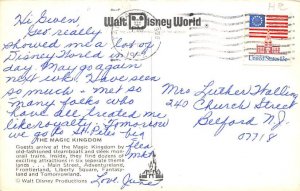 Hi Gwen,
Geo. really
showed me a lot of
Disney World in 1
day. May go again
next wk. Have seen
so much - met so
many folks who
have all treated me
like royalty. Tomorrow
we go to St. Pete big
flea
mkt.
Love, June
Walt Disney World
THE MAGIC KINGDOM
Guests arrive at the Magic Kingdom by
old-fashioned steamboats and sleek mono-
rail trains. Inside, they find dozens of
exciting attractions in six separate theme
lands . . . Main Street, Adventureland,
Frontierland, Liberty Square, Fantasy-
land and Tomorrowland.
© Walt Disney Productions
United States 13c
Mrs Luther Walling
240 Church Street
Belford NJ
07718